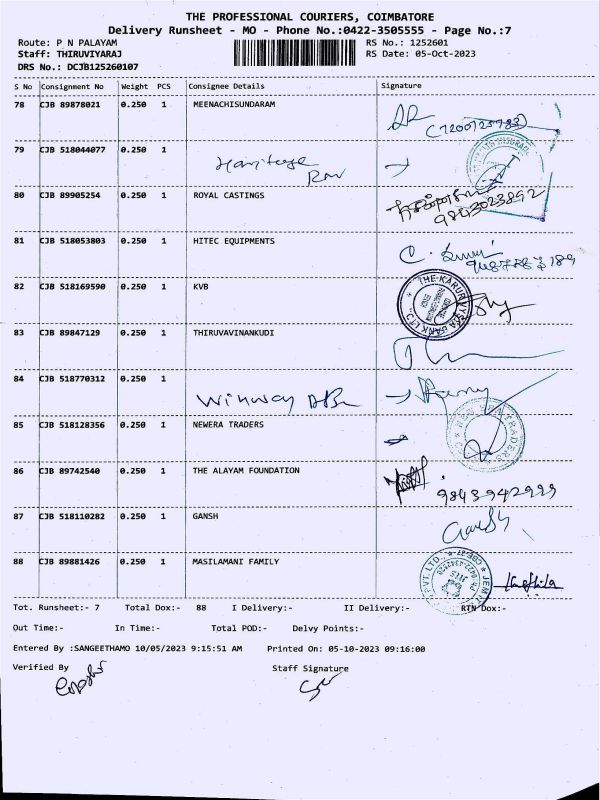 THE PROFESSIONAL COURIERS, COIMBATORE
Delivery Runsheet - MO - Phone No.:0422-3505555 - Page No.:7
Route: P N PALAYAM RS No.: 1252601
Staff: THIRUVIYARAJ RS Date: 05-Oct-2023
DRS No.: DCJB125260107
S No Consignment No Weight PCS Consignee Details Signature
78 CJB 89878021 0.250 1 MEENACHISUNDARAM
79 CJB 518044077 0.250 1 Heritage
80 CJB 89905254 0.250 1 ROYAL CASTINGS
9843023892
81 CJB 518053803 0.250 1 HITEC EQUIPMENTS
82 CJB 518169590 0.250 1 KVB
THE KARUR VYSYA BANK LTD.
83 CJB 89847129 0.250 1 THIRUVAVINANKUDI
84 CJB 518770312 0.250 1
Winway
85 CJB 518128356 0.250 1 NEWERA TRADERS
NEW ERA TRADERS
86 CJB 89742540 0.250 1 THE ALAYAM FOUNDATION
9843942999
87 CJB 518110282 0.250 1 GANSH
Gansh
88 CJB 89881426 0.250 1 MASILAMANI FAMILY
PVT. LTD.
Tot. Runsheet:- 7 Total Dox:- 88 I Delivery:- II Delivery:- RTN Dox:-
Out Time:- In Time:- Total POD:- Delvy Points:-
Entered By :SANGEETHAMO 10/05/2023 9:15:51 AM Printed On: 05-10-2023 09:16:00
Verified By Staff Signature